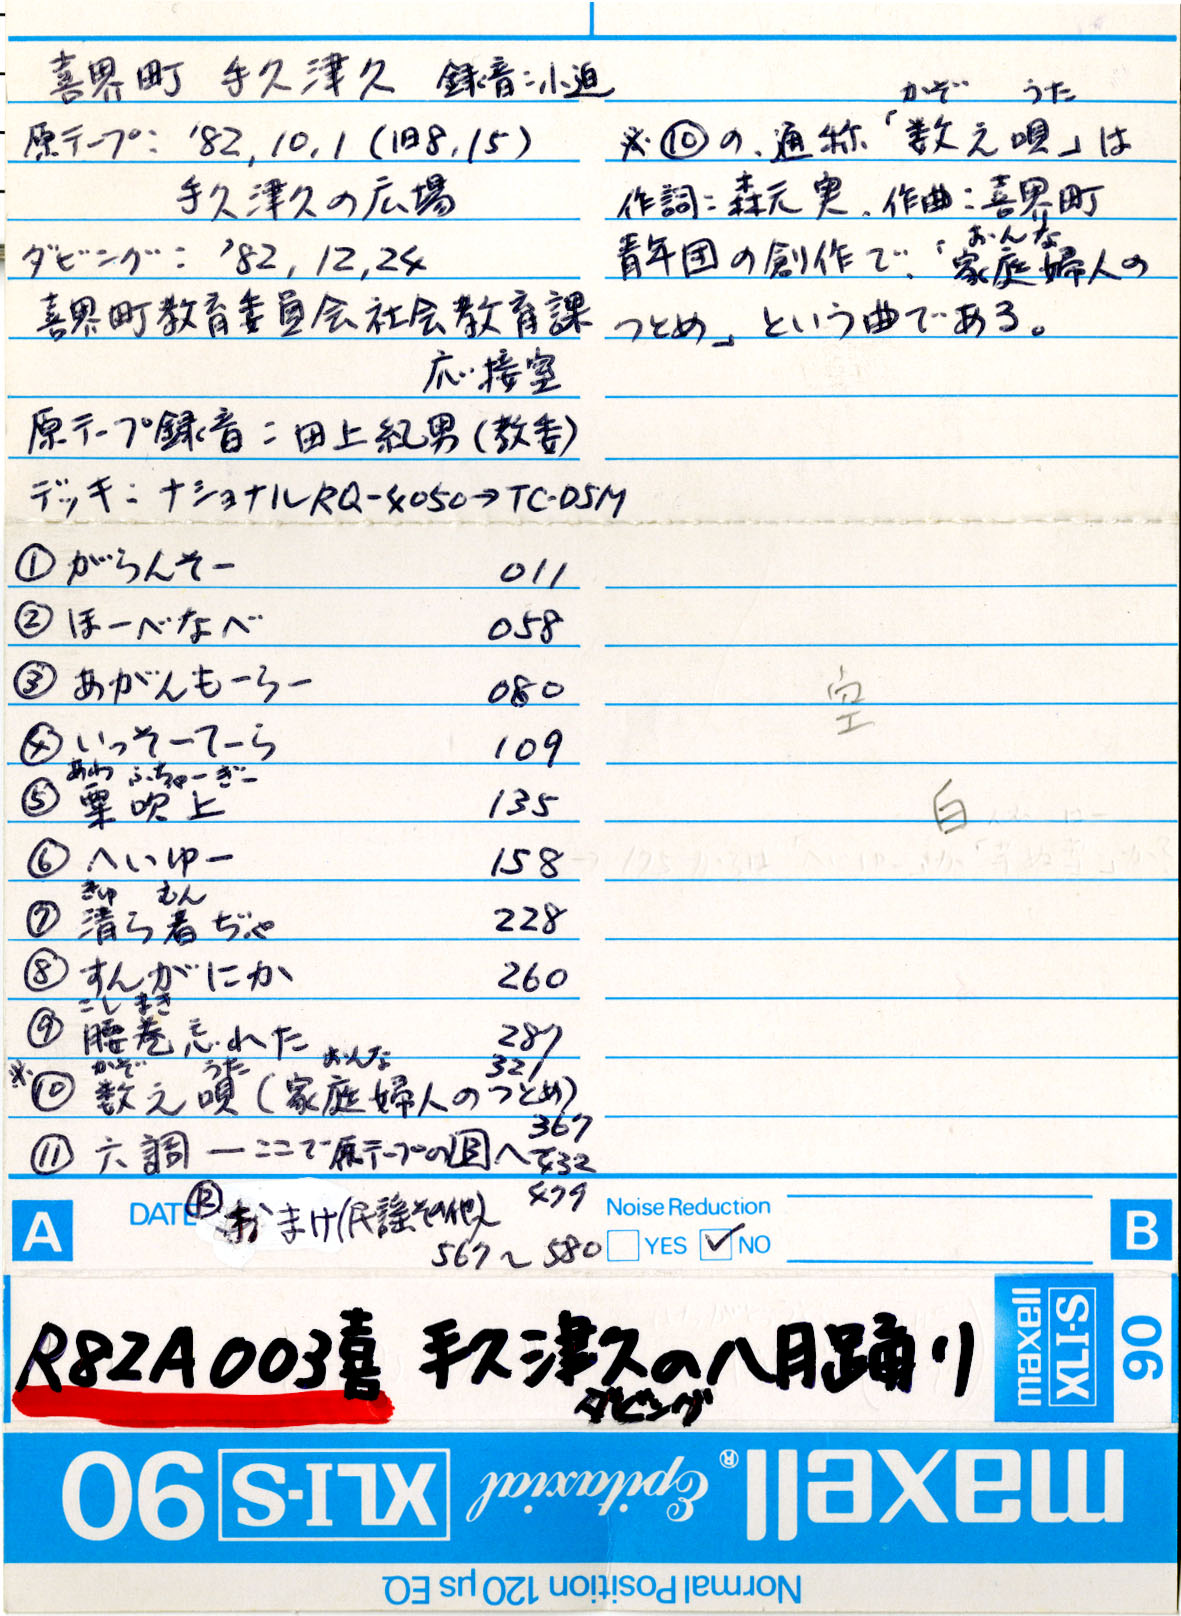 喜界町 手久津久 録音:小迫
原テープ: '82,10,1(旧8,15)
手久津久の広場
ダビング: '82,12,24
喜界町教育委員会社会教育課
応接室
原テープ録音:田上紀男(教委)
デッキ:ナショナルRQ-4050→TC-D5M
① がらんそー 011
② ほーべなべ 058
③ あがんもーらー 080
④ いっそーてーら 109
あわ ふちゃーぎー
⑤ 粟吹上 135
⑥ へいゆー 158
きゅ むん
⑦ 清ら着ぢゃ 228
⑧ すんがにか 260
こしまき
⑨ 腰巻忘れた 287
かぞ うた おんな 321
※⑩ 数え唄(家庭婦人のつとめ)
367
⑪ 六調 ーここで原テープのB面へ 432
479
⑫ おまけ(民謡その他)
567~580
かぞ うた
※⑩の通称「数え唄」は
作詞:森元実、作曲:喜界町
おんな
青年団の創作で、「家庭婦人の
つとめ」という曲である。
空
白
A
DATE
Noise Reduction
YES NO
B
R82A003喜 手久津久の八月踊り
ダビング
maxell
XLI-S
90
maxell®
Epitaxial
XLI-S 90
Normal Position 120 μs EQ